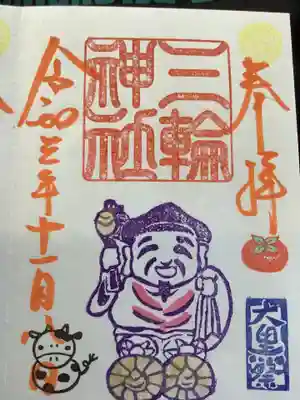 奉拝
三輪
神社
令和三年十一月
大黒祭